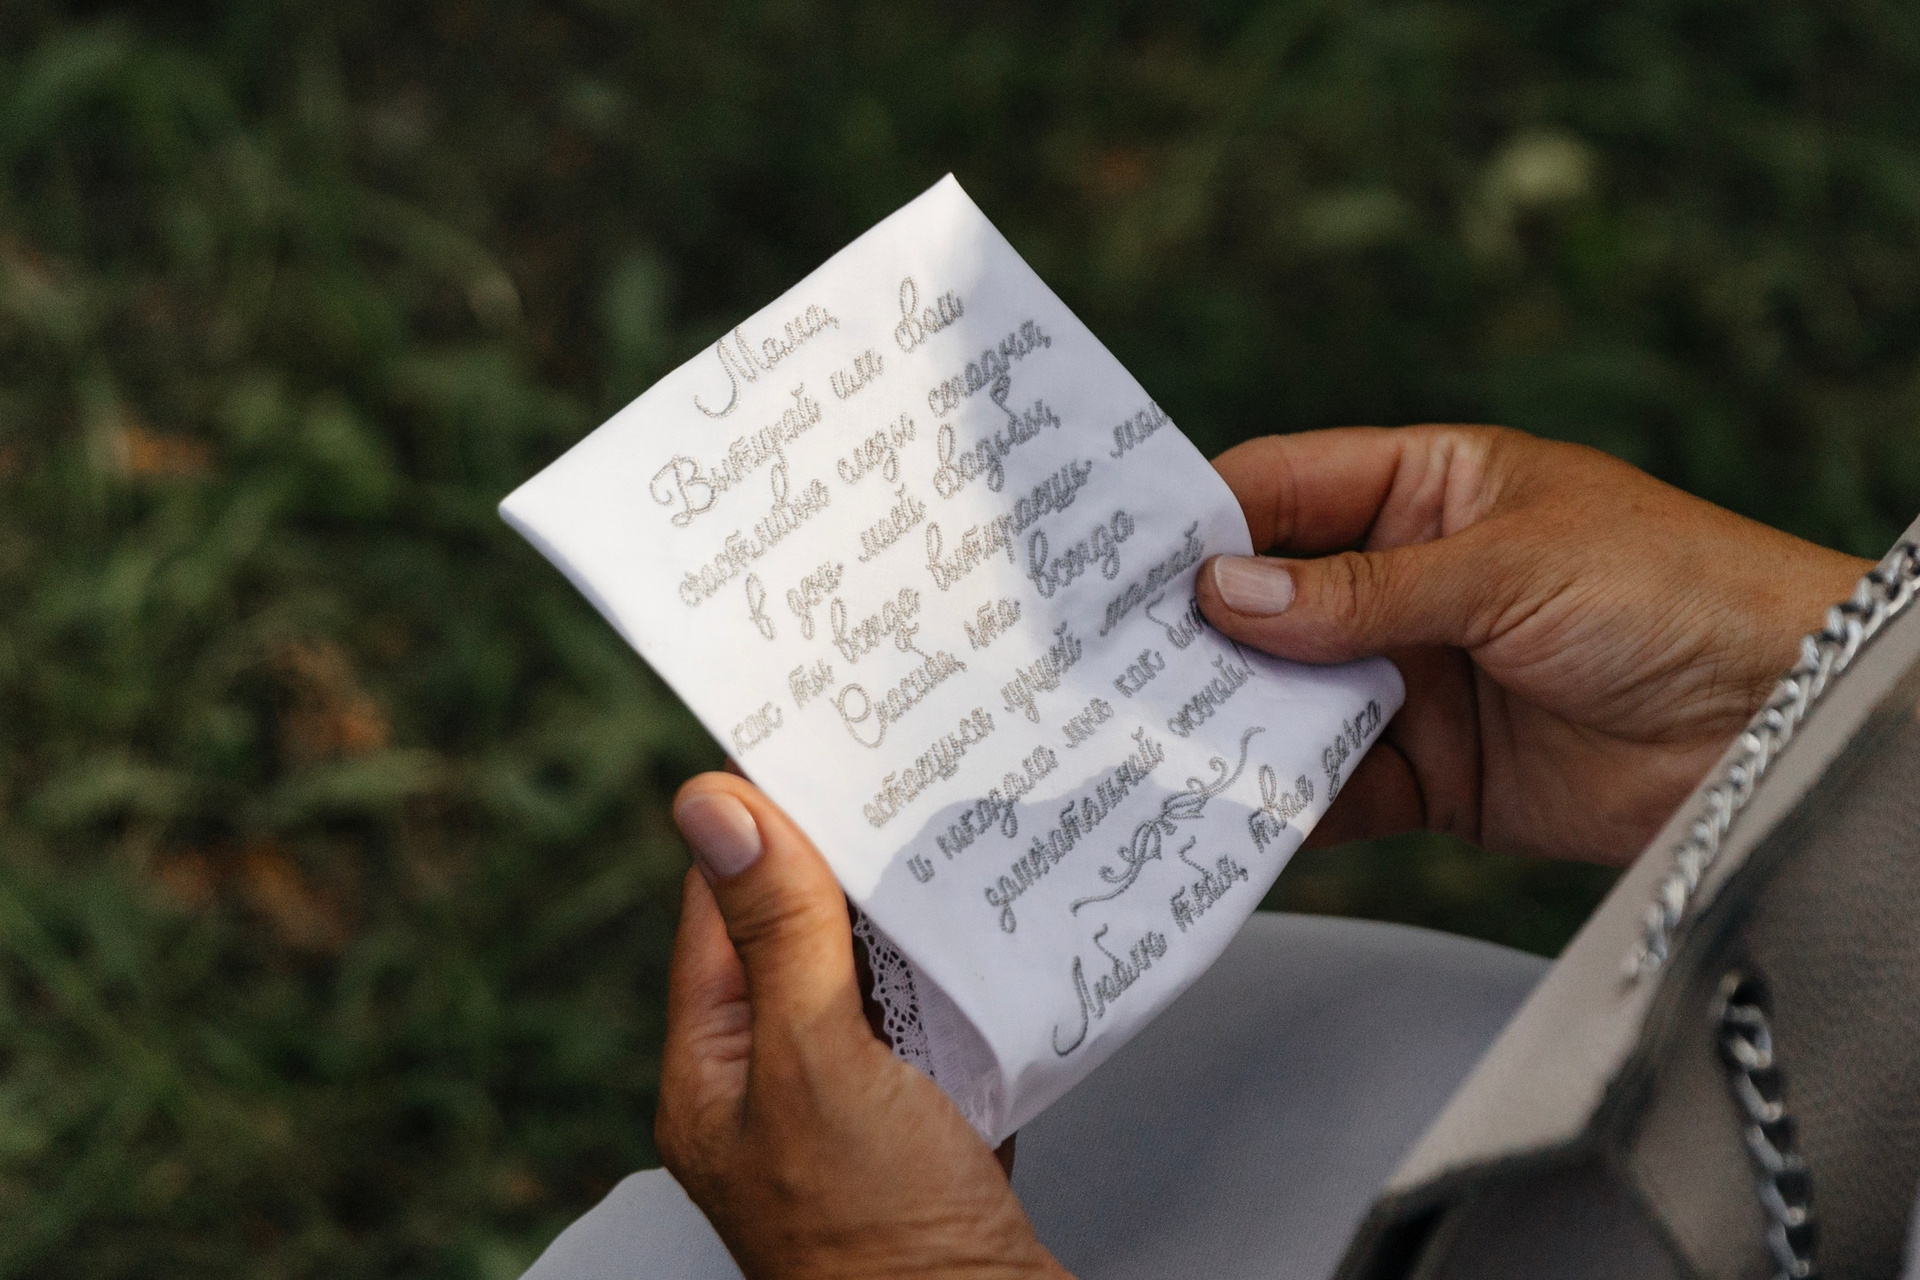 Мама,
Вытирай им свои
счастливые слезы сегодня,
в день моей свадьбы,
как ты всегда вытираешь мои
Спасибо, что всегда
остаешься лучшей мамой
и показала мне как быть
замечательной женой!
Люблю тебя, твоя дочка